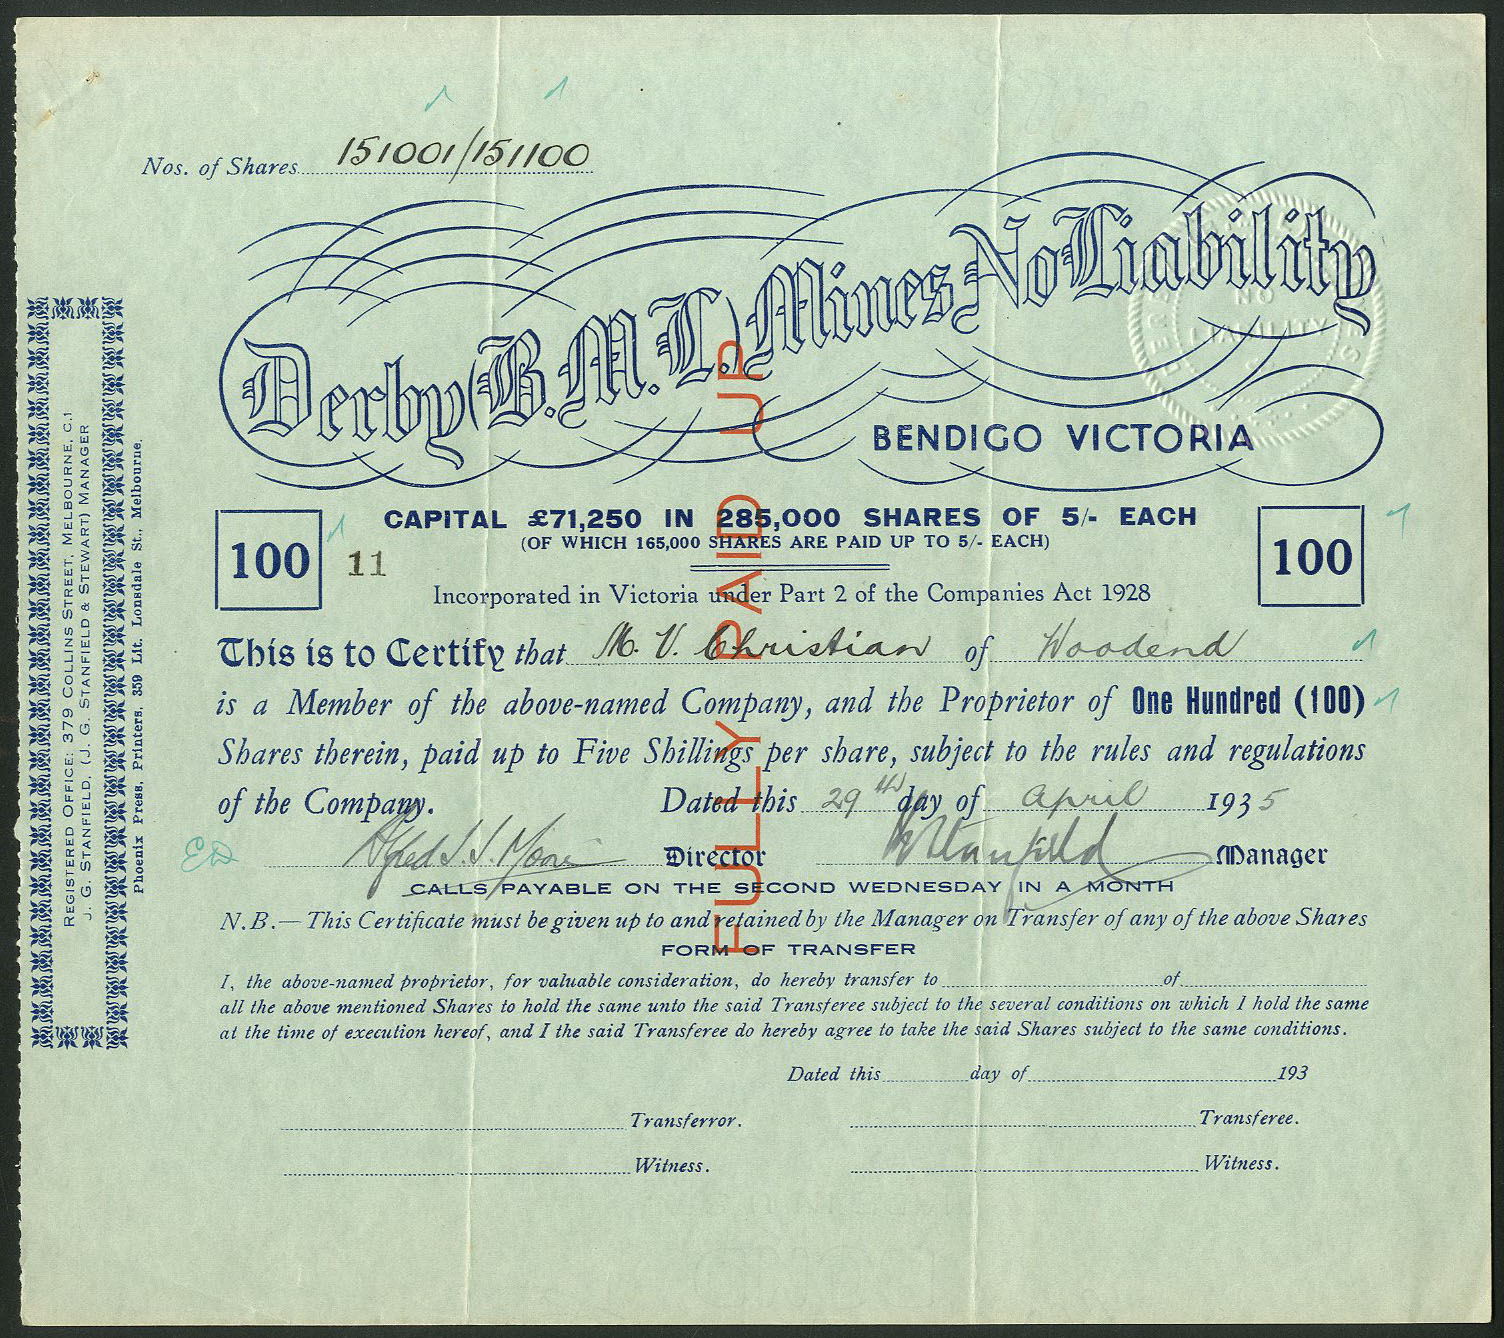 Nos. of Shares 151001/151100
Derby (B.M.L.) Mines No Liability
BENDIGO VICTORIA
NO
LIABILITY
CAPITAL £71,250 IN 285,000 SHARES OF 5/- EACH
(OF WHICH 165,000 SHARES ARE PAID UP TO 5/- EACH)
100 11 100
Incorporated in Victoria under Part 2 of the Companies Act 1928
This is to Certify that M. V. Christian of Woodend
is a Member of the above-named Company, and the Proprietor of One Hundred (100)
Shares therein, paid up to Five Shillings per share, subject to the rules and regulations
of the Company. Dated this 29th day of April 1935
Director Stanfield Manager
CALLS PAYABLE ON THE SECOND WEDNESDAY IN A MONTH
N.B.— This Certificate must be given up to and retained by the Manager on Transfer of any of the above Shares
FORM OF TRANSFER
I, the above-named proprietor, for valuable consideration, do hereby transfer to of
all the above mentioned Shares to hold the same unto the said Transferee subject to the several conditions on which I hold the same
at the time of execution hereof, and I the said Transferee do hereby agree to take the said Shares subject to the same conditions.
Dated this day of 193
Transferror. Transferee.
Witness. Witness.
FULLY PAID UP
REGISTERED OFFICE: 379 COLLINS STREET, MELBOURNE, C.1
J. G. STANFIELD, (J. G. STANFIELD & STEWART) MANAGER
Phoenix Press, Printers, 359 Lit. Lonsdale St., Melbourne.